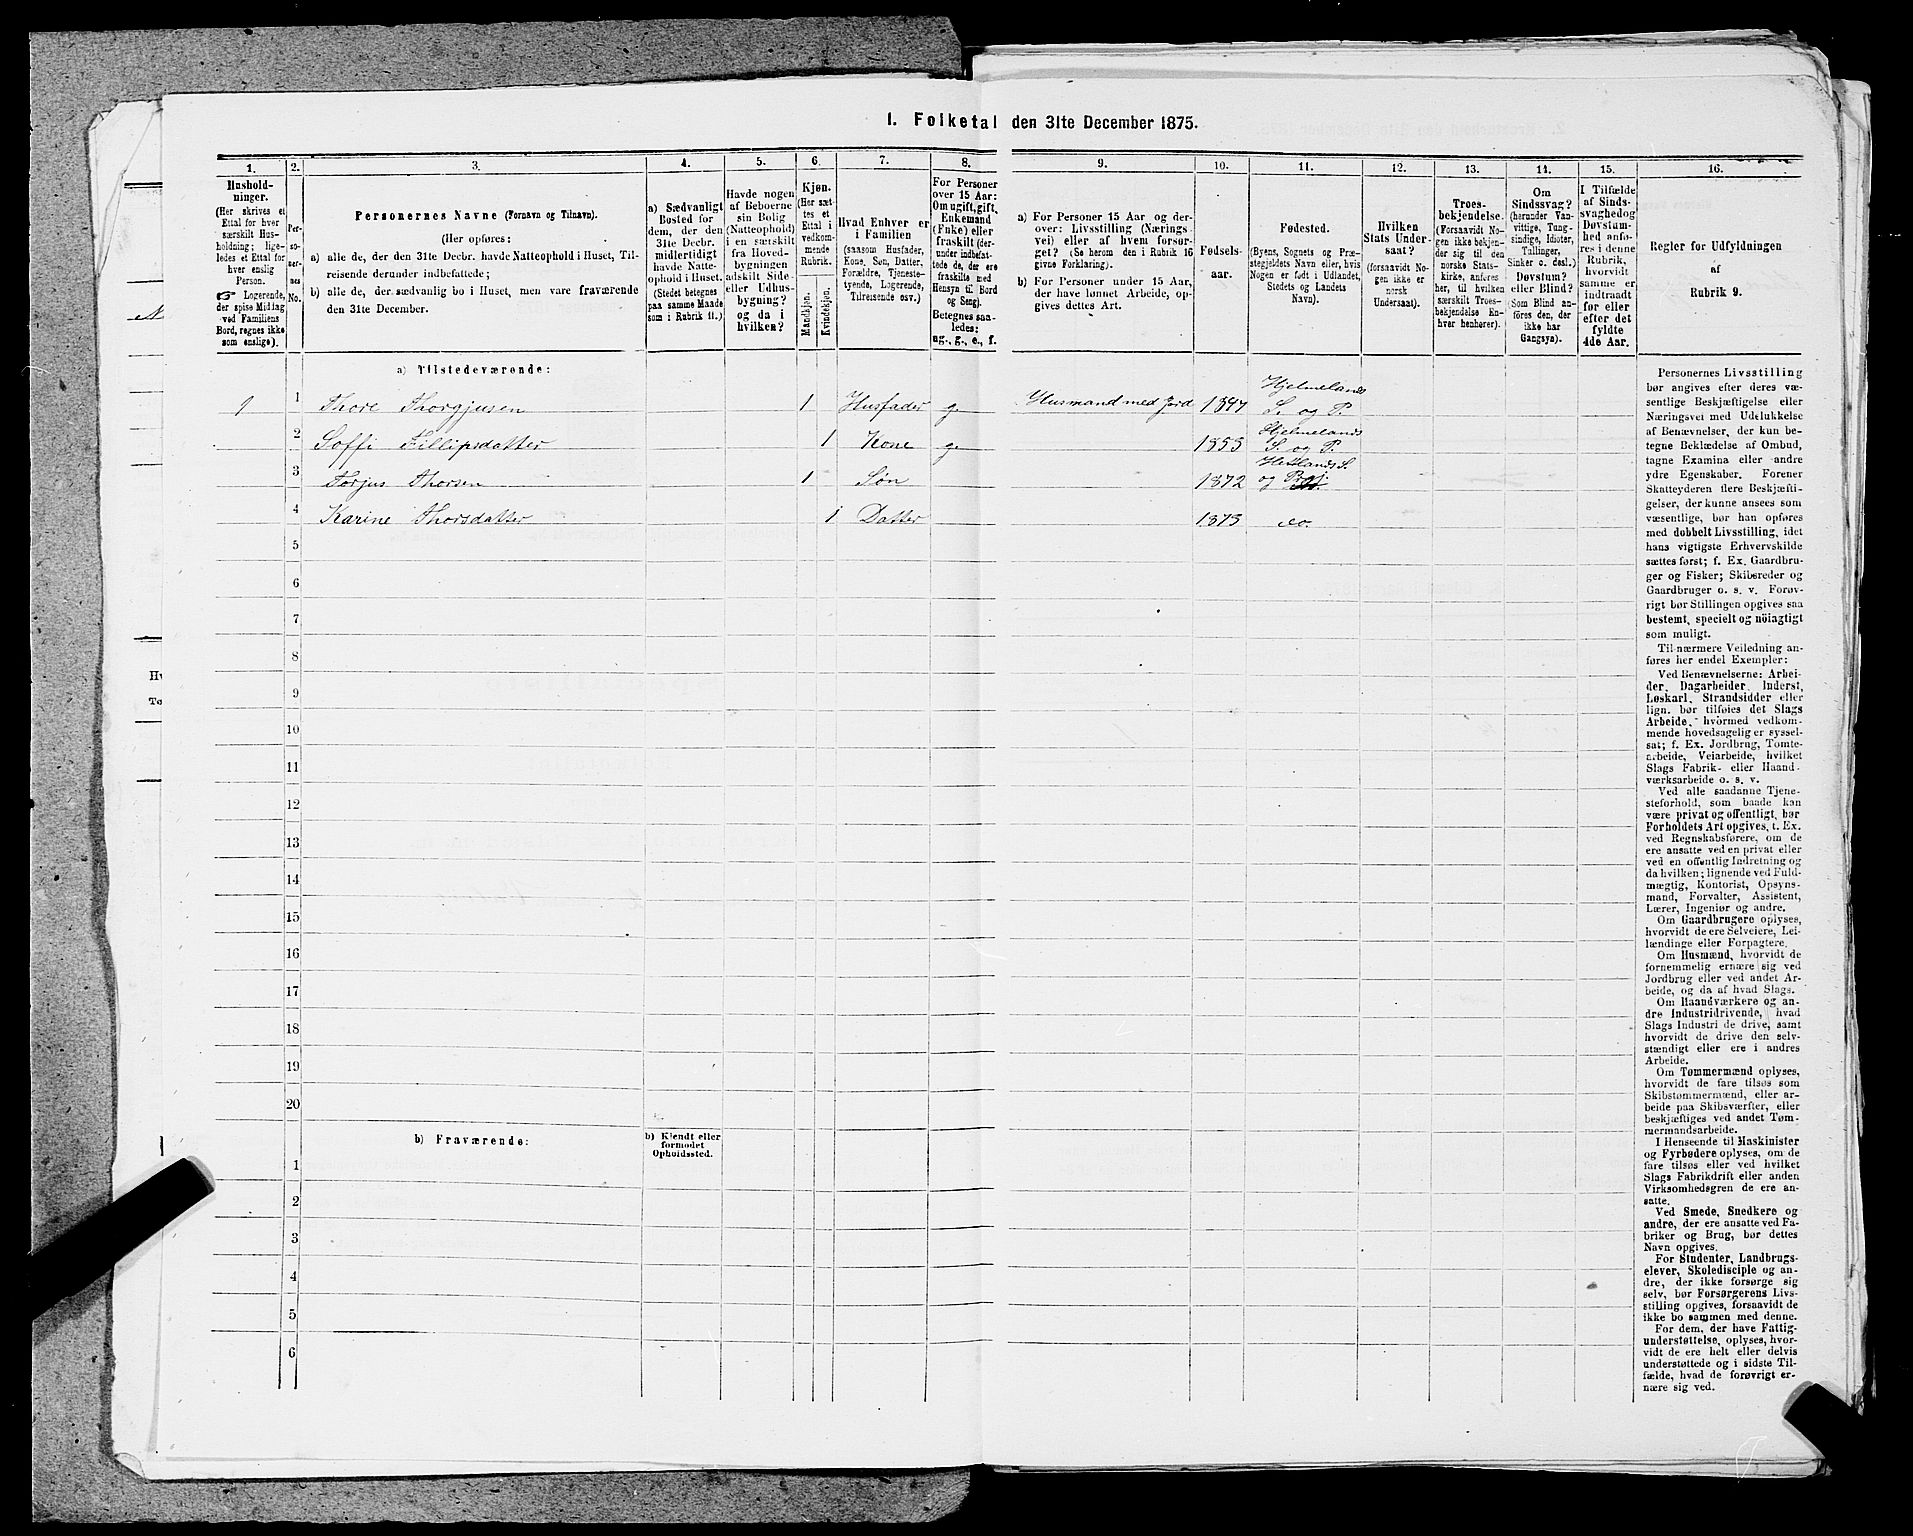 1. Folketal den 31te December 1875.
1. 2. 3. 4. 5. 6. 7. 8. 9. 10. 11. 12. 13. 14. 15. 16.
Hushold-
ninger.
(Her skrives et
Ettal for hver
særskilt Hus-
holdning; lige-
ledes et Ettal for
hver enslig
Person.
☞ Logerende,
der spise Middag
ved Familiens
Bord, regnes ikke
som enslige).
Per-
so-
ner-
nes
No.
Personernes Navne (Fornavn og Tilnavn).
(Her opføres:
a) alle de, der den 31te Decbr. havde Natteophold i Huset, Til-
reisende derunder indbefattede;
b) alle de, der sædvanlig bo i Huset, men vare fraværende
den 31te December.
a) Sædvanligt
Bosted for
dem, der den
31te Decbr.
midlertidigt
havde Natte-
ophold i Huset.
(Stedet betegnes
paa samme Maade
som i Rubrik 11.)
Havde nogen
af Beboerne
sin Bolig
(Natteophold)
i en særskilt
fra Hoved-
bygningen
adskilt Side-
eller Udhus-
bygning?
og da i
hvilken?
Kjøn.
(Her sæt-
tes et
Ettal i
vedkom-
mende
Rubrik.
Mandkjøn.
Kvindekjøn.
Hvad Enhver er
i Familien
(saasom Husfader,
Kone, Søn, Datter,
Forældre, Tjeneste-
tyende, Logerende,
Tilreisende osv.)
For Personer
over 15 Aar:
Om ugift, gift,
Enkemand
(Enke) eller
fraskilt (der-
under indbefat-
tede de, der ere
fraskilte med
Hensyn til Bord
og Seng).
Betegnes saa-
ledes:
ug., g., e., f.
a) For Personer 15 Aar og der-
over: Livsstilling (Nærings-
vei) eller af hvem forsør-
get? (Se herom den i Rubrik 16
givne Forklaring).
b) For Personer under 15 Aar,
der have lønnet Arbeide, op-
gives dettes Art.
Fødsels-
aar.
Fødested.
(Byens, Sognets og Præ-
stegjeldets Navn eller, hvis
Nogen er født i Udlandet,
Stedets og Landets
Navn).
Hvilken
Stats Under-
saat?
(forsaavidt No-
gen ikke er
norsk
Undersaat).
Troes-
bekjendelse.
(Forsaavidt No-
gen ikke bekjen-
der sig til den
norske Stats-
kirke, anføres
her, til hvilken
særskilt Troes-
bekjendelse En-
hver henhører).
Om
Sindssvag?
(herunder Van-
vittige, Tung-
sindige, Idioter,
Tallinger,
Sinker o. desl.).
Døvstum?
eller Blind?
(Som Blind an-
føres den, der
ikke har
Gangsyn).
I Tilfælde
af Sinds-
svaghed og
Døvstum-
hed anfø-
res i denne
Rubrik,
hvorvidt
samme er
indtraadt
før eller
efter det
fyldte
4de Aar.
Regler for Udfyldningen
af
Rubrik 9.
a) Tilstedeværende:
1 1 Thore Thorgjusen 1 Husfader g. Husmand med Jord 1847 Hjelmelands
S. og P.
2 Soffi Fillipsdatter 1 Kone g. 1853 Hjelmelands
S. og P.
3 Torjus Thorsen 1 Søn 1872 Hetlands S.
og
4 Karine Thorsdatter 1 Datter 1873 do.
5
6
7
8
9
10
11
12
13
14
15
16
17
18
19
20
b) Fraværende:
b) Kjendt eller
formodet
Opholdssted.
1
2
3
4
5
6
Personernes Livsstilling
bør angives efter deres væ-
sentlige Beskjæftigelse eller
Næringsvei med Udelukkelse
af Benævnelser, der kun be-
tegne Beklædelse af Ombud,
tagne Examina eller andre
ydre Egenskaber. Forener
Skatteyderen flere Beskjæfti-
gelser, der kunne ansees som
væsentlige, bør han opføres
med dobbelt Livsstilling, idet
hans vigtigste Erhvervskilde
sættes først; f. Ex. Gaardbru-
ger og Fisker; Skibsreder og
Gaardbruger o. s. v. Forøv-
rigt bør Stillingen opgives saa
bestemt, specielt og nöiagtigt
som muligt.
Til nærmere Veiledning an-
føres her endel Exempler:
Ved Benævnelserne: Arbei-
der, Dagarbeider, Inderst,
Løskarl, Strandsidder eller
lign. bør tilføies det Slags
Arbeide, hvormed vedkom-
mende hovedsagelig er syssel-
sat; f. Ex. Jordbrug, Tomte-
arbeide, Veiarbeide, hvilket
Slags Fabrik- eller Haand-
værksarbeide o. s. v.
Ved alle saadanne Tjene-
steforhold, som baade kan
være privat og offentligt, bør
Forholdets Art opgives, t. Ex.
ved Regnskabsførere, om de
ere ansatte ved en privat eller
ved en offentlig Indretning og
da hvilken; lignende ved Fuld-
mægtig, Kontorist, Opsyns-
mand, Forvalter, Assistent,
Lærer, Ingeniør og andre.
Om Gaardbrugere oplyses,
hvorvidt de ere Selveiere, Lei-
lændinge eller Forpagtere.
Om Husmænd, hvorvidt de
fornemmelig ernære sig ved
Jordbrug eller ved andet Ar-
beide, og da af hvad Slags.
Om Haandværkere og an-
dre Industridrivende, hvad
Slags Industri de drive, samt
hvorvidt de drive den selv-
stændigt eller ere i andres
Arbeide.
Om Tømmermænd oplyses,
hvorvidt de fare tilsøs som
Skibstømmermænd, eller ar-
beide paa Skibsværfter, eller
beskjæftiges ved andet Tøm-
mermandsarbeide.
I Henseende til Maskinister
og Fyrbødere oplyses, om de
fare tilsøs eller ved hvilket
Slags Fabrikdrift eller anden
Virksomhedsgren de ere an-
satte.
Ved Smede, Snedkere og
andre, der ere ansatte ved Fa-
briker og Brug, bør dettes
Navn opgives.
For Studenter, Landbrugs-
elever, Skoledisciple og an-
dre, der ikke forsørge sig
selv, bør Forsørgerens Livs-
stilling opgives, forsaavidt de
ikke bo sammen med denne.
For dem, der have Fattig-
understøttelse, oplyses, hvor-
vidt de ere helt eller delvis
understøttede og i sidste Til-
fælde, hvad de forøvrigt er-
nære sig ved.